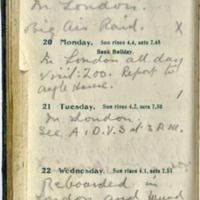 In London.
Big Air Raid. X
20 Monday. Sun rises 4.4, sets 7.48
Bank Holiday.
In London all day
Visit: Zoo. Report to
Eagle House.
21 Tuesday. Sun rises 4.2, sets 7.50
In London:
See A.D.V.S at 3 P.M.
22 Wednesday. Sun rises 4.1, sets 7.51
in
London and